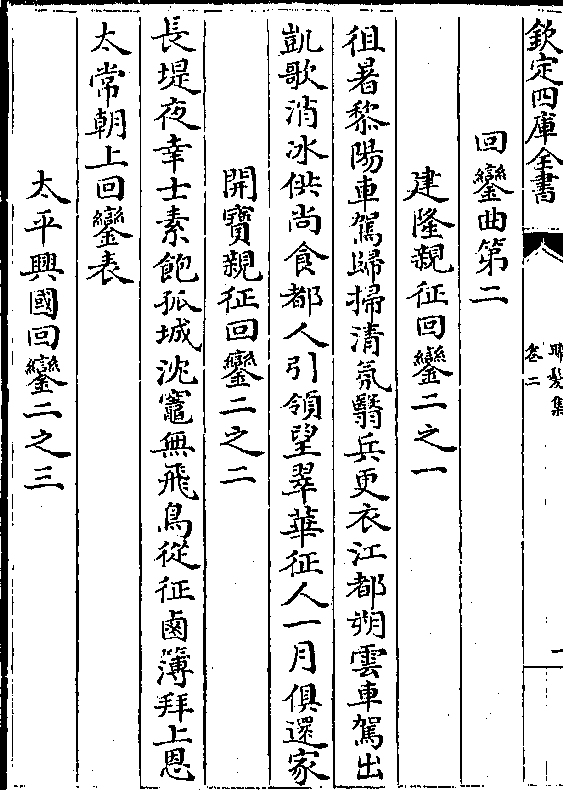 欽定四庫全書
晞髮集
卷二
回鑾曲第二
建隆親征回鑾二之一
徂暑黎陽車駕歸掃清氛翳兵更衣江都朔雲車駕出
凱歌消冰供尚食都人引領望翠華征人一月俱還家
開寶親征回鑾二之二
長堤夜幸士素飽孤城沈竈無飛鳥從征鹵簿拜上恩
太常朝上回鑾表
太平興國回鑾二之三